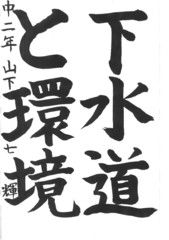 下水道
と環境
中二年 山下七輝